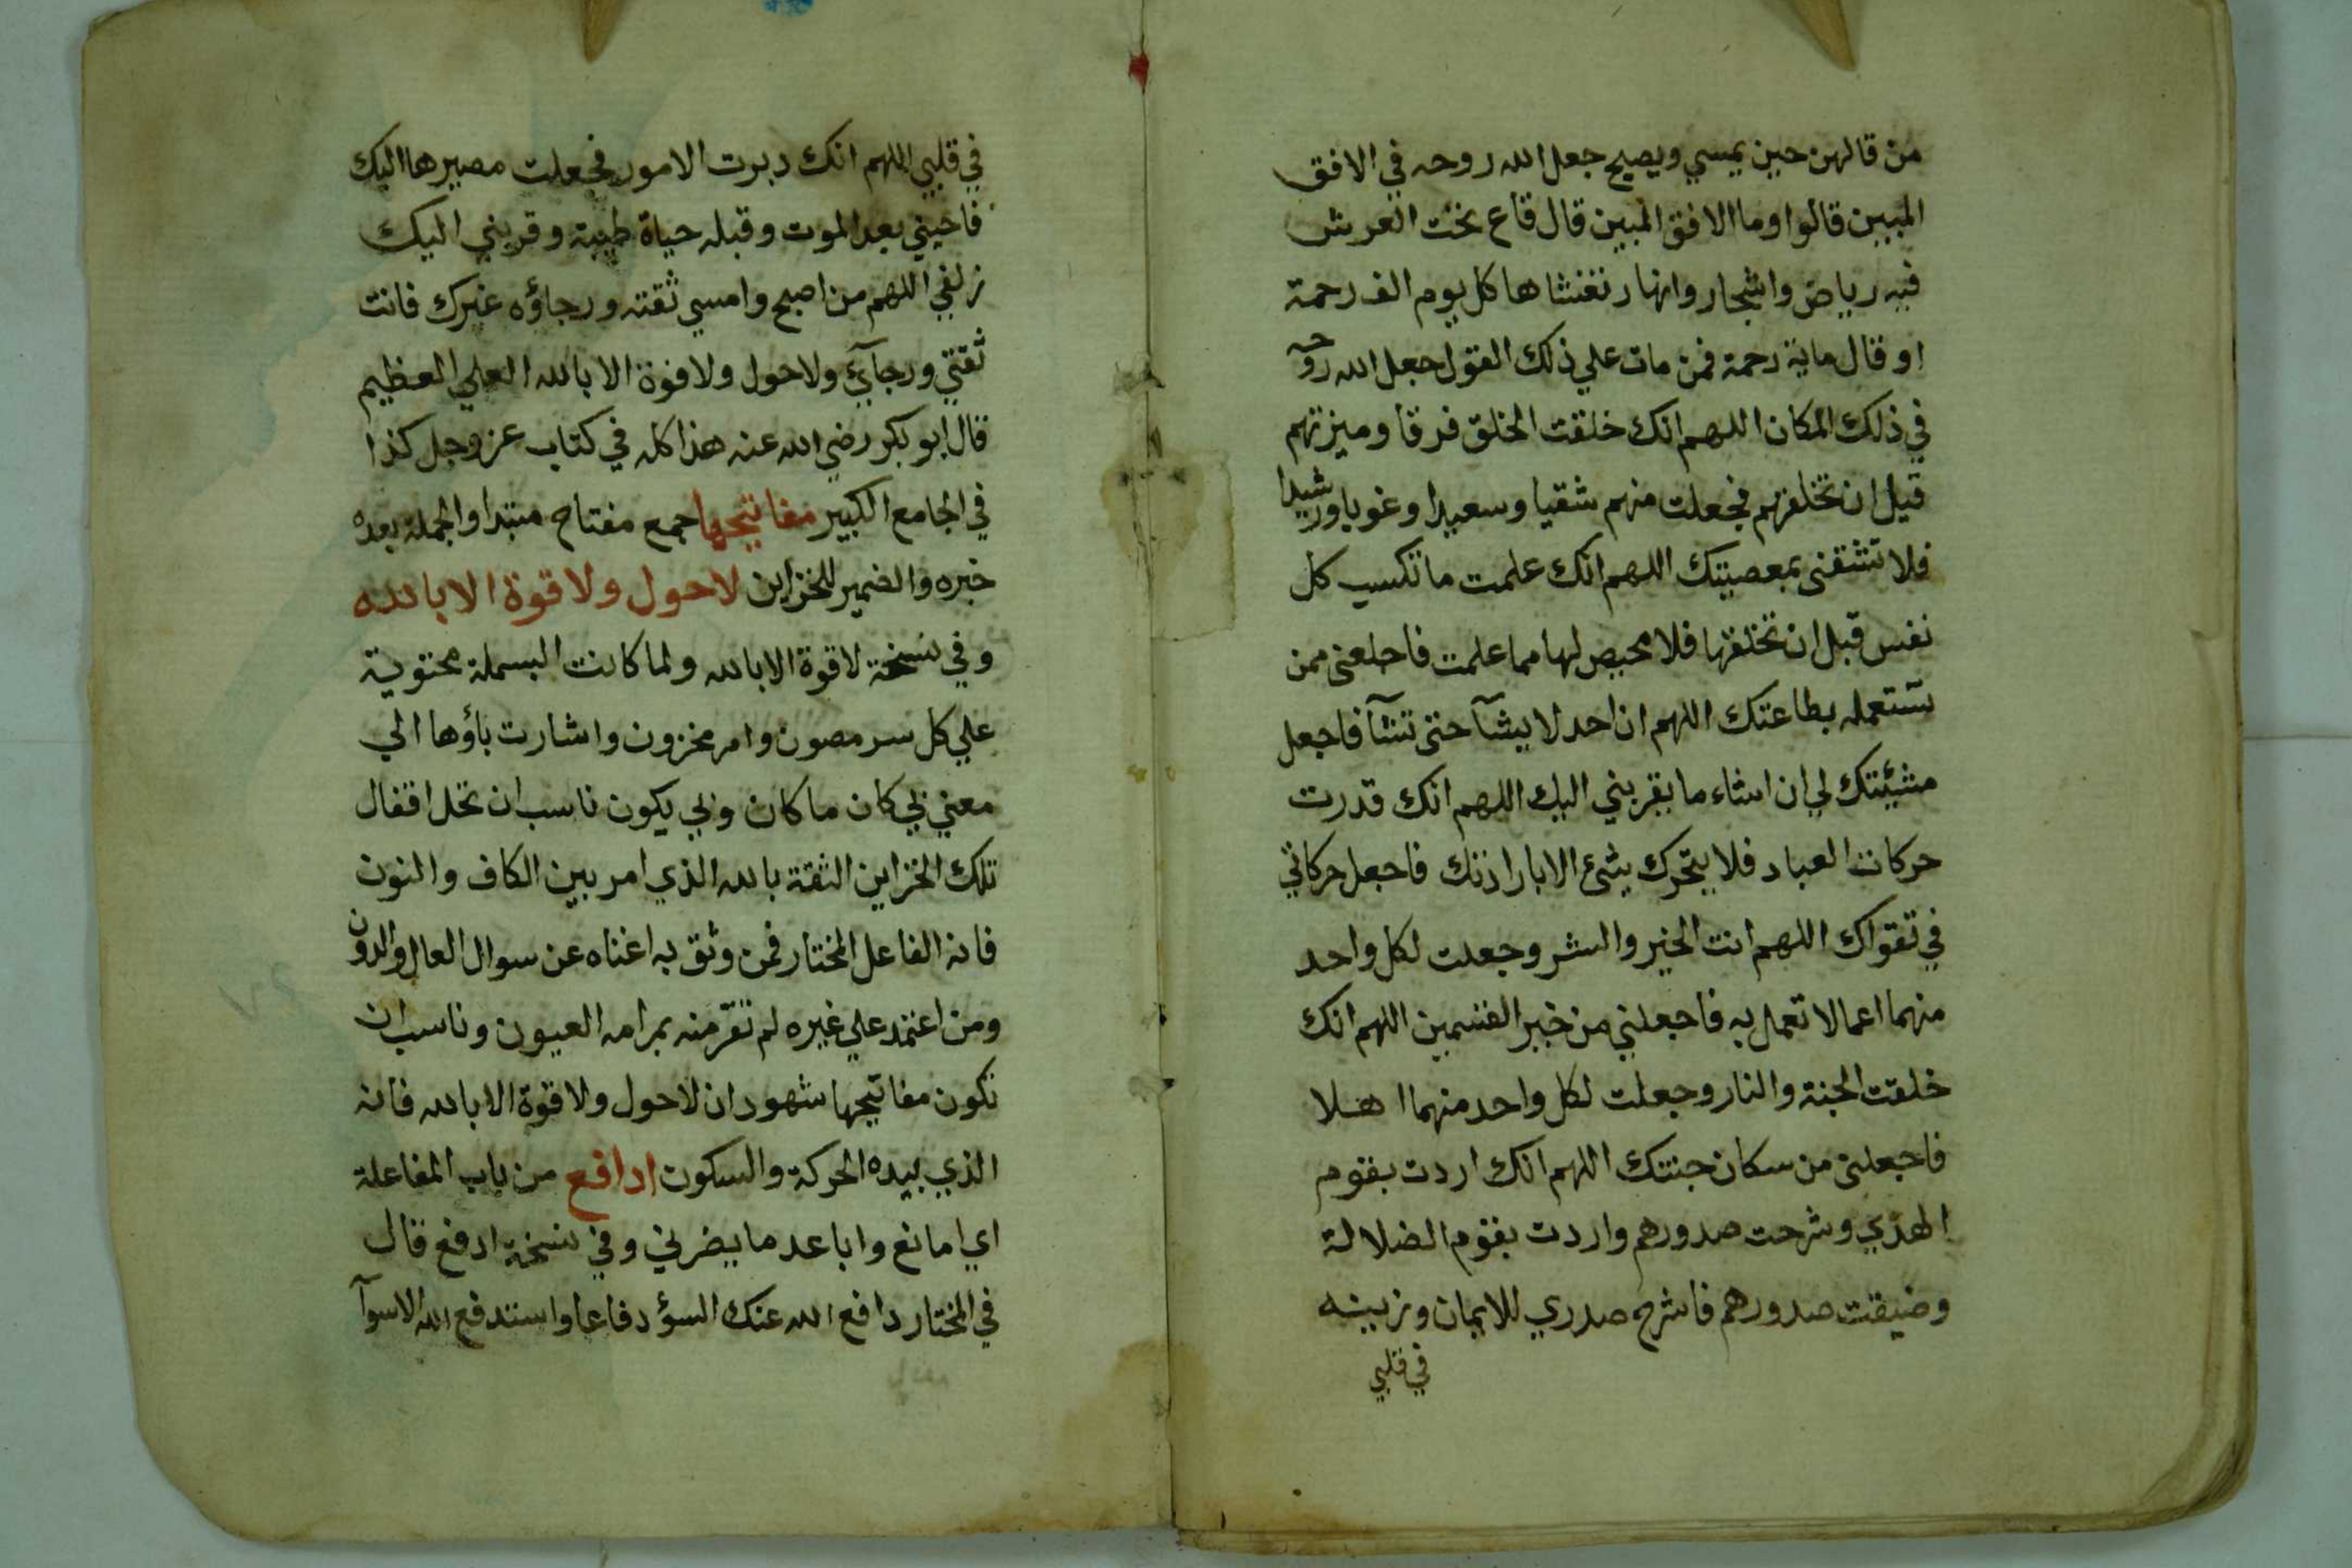 من قالهن حين يمسي ويصبح جعل الله روحه في الافق
المبين قالوا وما الافق المبين قال قاع تحت العرش
فيه رياض واشجار وانهار تغشاها كل يوم الف رحمة
او قال ماية رحمة فمن مات علي ذلك القول جعل الله روحه
في ذلك المكان اللهم انك خلقت الخلق فرقا وميزتهم
قبل ان تخلقهم فجعلت منهم شقيا وسعيدا وغويا ورشيدا
فلا تشقني بمعصيتك اللهم انك علمت ما تكسب كل
نفس قبل ان تخلقها فلا محيص لها مما علمت فاجعلني ممن
تستعمله بطاعتك اللهم ان احد لا يشآ حتى تشآ فاجعل
مشيئتك لي ان اشاء ما يقربني اليك اللهم انك قدرت
حركات العباد فلا يتحرك شيء الا بارادتك فاجعل حركاتي
في تقواك اللهم انت الخير والشر وجعلت لكل واحد
منهما اعمالا تعمل به فاجعلني من خير القسمين اللهم انك
خلقت الجنة والنار وجعلت لكل واحد منهما اهلا
فاجعلني من سكان جنتك اللهم انك اردت بقوم
الهدي وشرحت صدورهم واردت بقوم الضلالة
وضيقت صدورهم فاشرح صدري للايمان وزينه
في قلبي
في قلبي اللهم انك دبرت الامور فجعلت مصيرها اليك
فاحيني بعد الموت وقبله حياة طيبة وقربني اليك
زلفي اللهم من اصبح وامسي ثقته ورجاؤه غيرك فانت
ثقتي ورجآئي ولا حول ولا قوة الا بالله العلي العظيم
قال ابو بكر رضي الله عنه هذا كله في كتاب عز وجل كذا
في الجامع الكبير مفاتيحها جمع مفتاح مبتدا والجملة بعده
خبره والضمير للخزاين لا حول ولا قوة الا بالله
وفي نسخة لا قوة الا بالله ولما كانت البسملة محتوية
علي كل سر مصون وامر مخزون واشارت باؤها الي
معني بي كان ما كان وبي يكون ناسب ان تحل اقفال
تلك الخزاين الثقة بالله الذي امر بين الكاف والنون
فانه الفاعل المختار فمن وثق به اغناه عن سوال العال والدون
ومن اعتمد علي غيره لم تقر منه بمرامه العيون وناسب ان
تكون مفاتيحها شهود ان لا حول ولا قوة الا بالله فانه
الذي بيده الحركة والسكون ادافع من باب المفاعلة
اي امانع واباعد ما يضرني وفي نسخة ادفع قال
في المختار دافع الله عنك السؤ دفاعا واستدفع الله الاسوآ